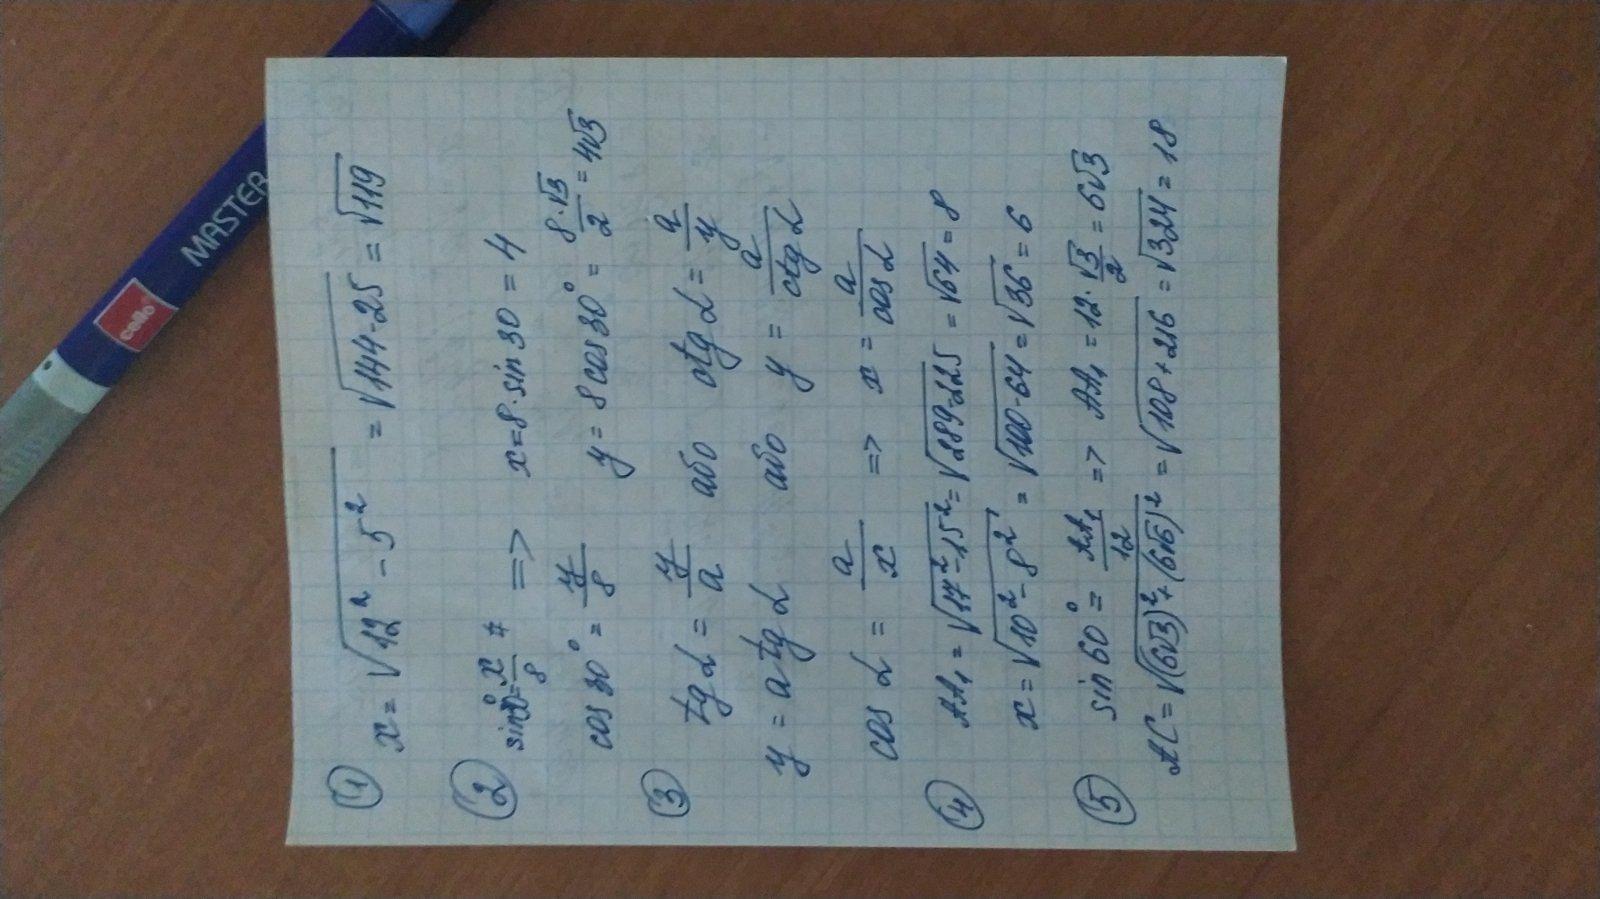 ① x = √(12² - 5²) = √(144-25) = √119
② sin30° = x/8 => x=8·sin 30 = 4
cos 30° = y/8 y = 8 cos 30° = 8·√3/2 = 4√3
③ tg α = y/a або ctg α = a/y
y = a tg α або y = a/ctg α
cos α = a/x => x = a/cos α
④ AA₁ = √(17²-15²) = √(289-225) = √64 = 8
x = √(10²-8²) = √(100-64) = √36 = 6
⑤ sin 60° = AA₁/12 => AA₁ = 12·√3/2 = 6√3
AC = √((6√3)²+(6√6)²) = √(108+216) = √324 = 18
cello
MASTER